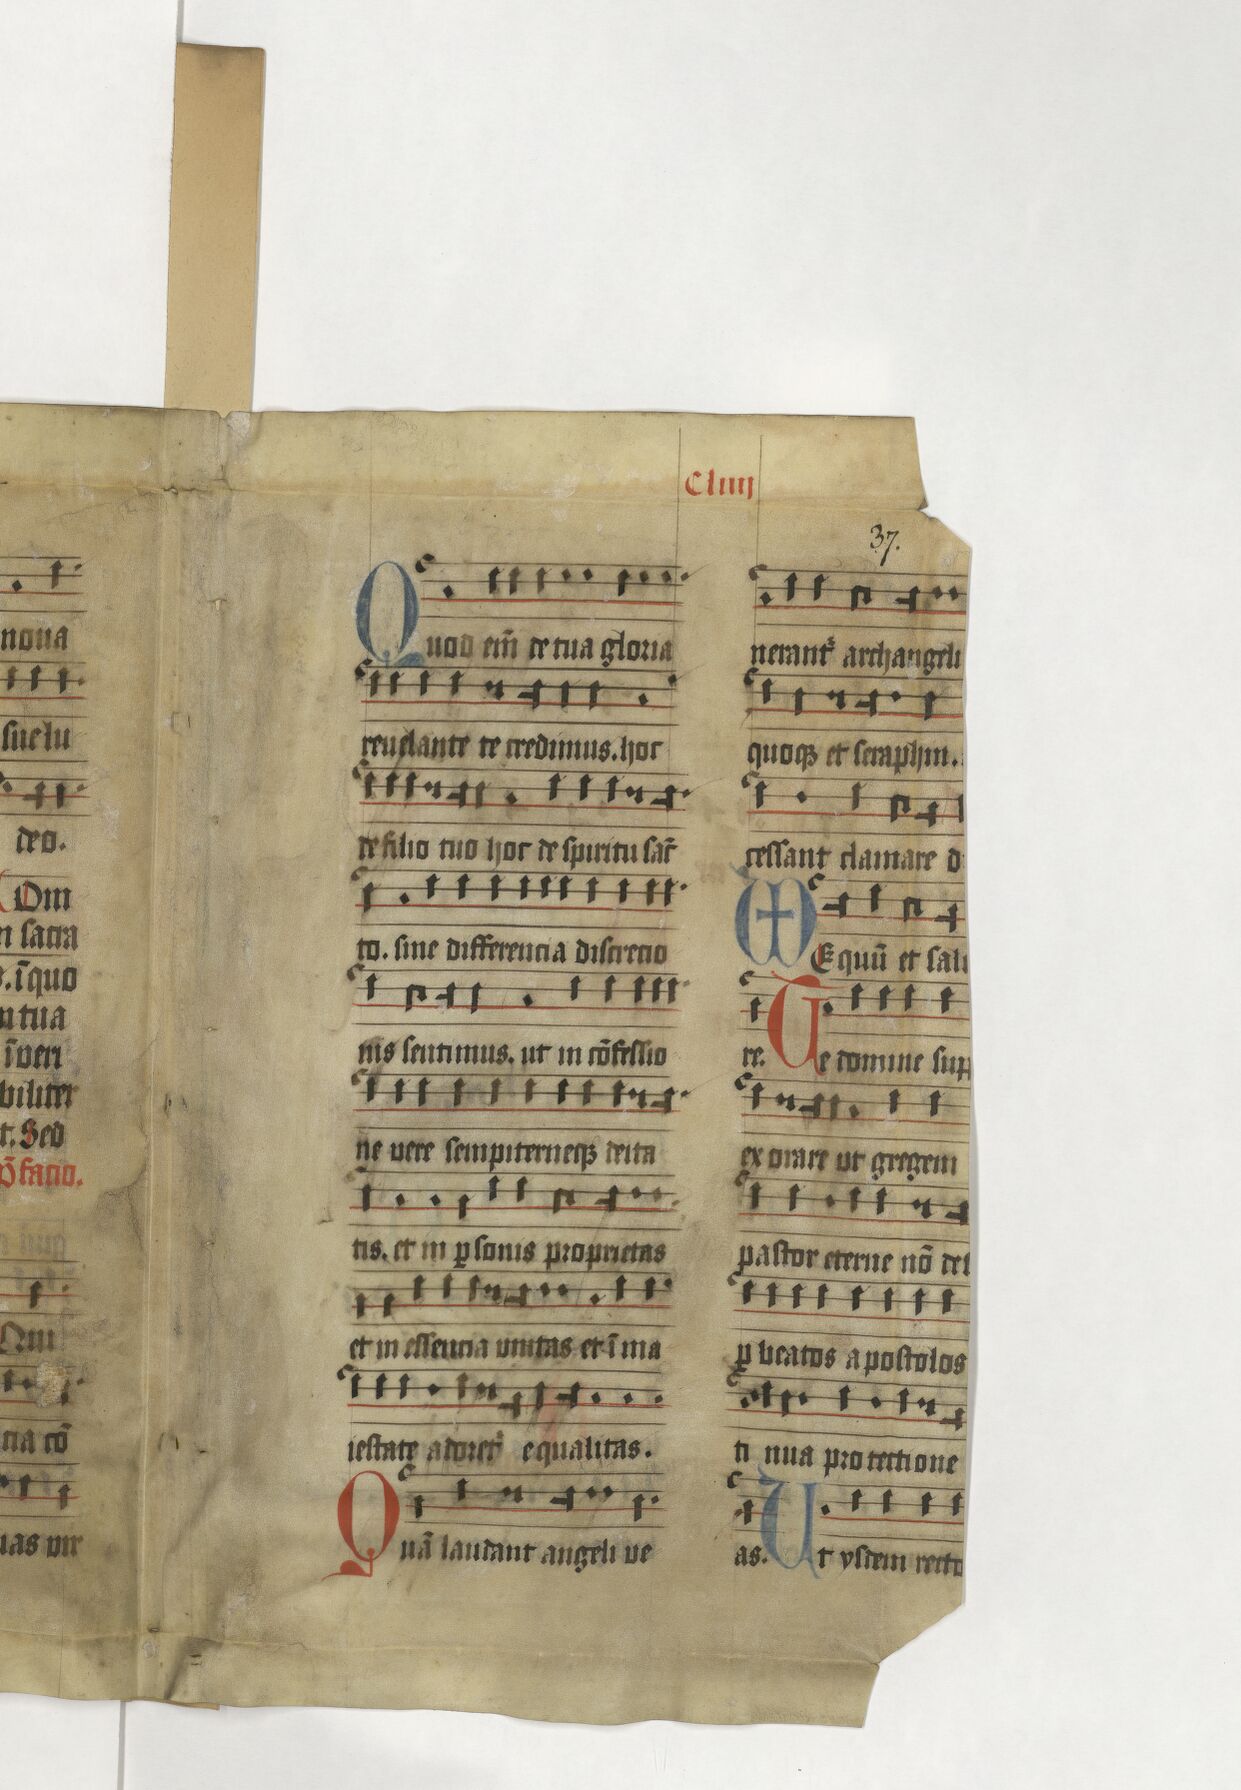 nova
suelu
deo.
Om
n sacra
. īquo
n tua
īveri
biliter
t. Sed
p̄facio.
Qui
cia cō
uas vir
Cliiij
Quod eni̅ de tua gloria
reuelante te credimus. hoc
de filio tuo hoc de spiritu sāc
to. sine differencia discrecio
nis sentimus. ut in cōfessio
ne vere sempiterneqꝫ deita
tis. et in ꝑsonis proprietas
et in essencia unitas et ī ma
iestate adoret᷑ equalitas.
Quā laudant angeli ve
37.
nerant᷑ archangeli
quoqꝫ et seraphin.
cessant clamare d
Equū et salu
re. Te domine supp
exorare ut gregem
pastor eterne nō de
ꝑ beatos apostolos
ti nua protectione
as. Ut ysdem recto